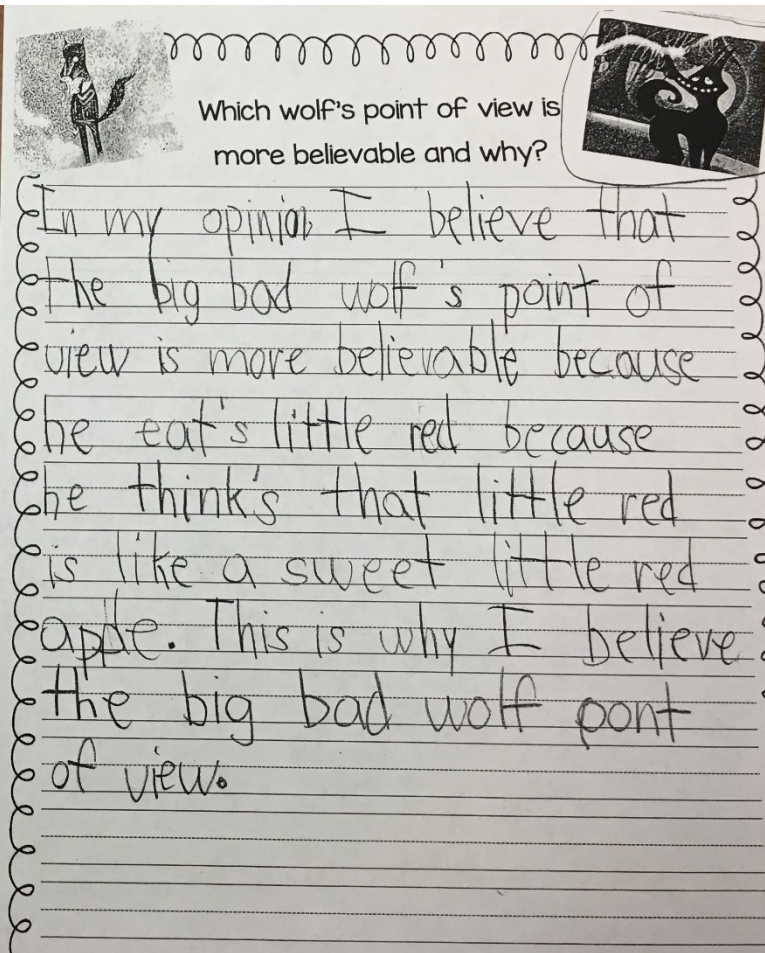 Which wolf's point of view is
more believable and why?
In my opinion I believe that
the big bad wolf's point of
view is more believable because
he eat's little red because
he think's that little red
is like a sweet little red
apple. This is why I believe
the big bad wolf pont
of view.